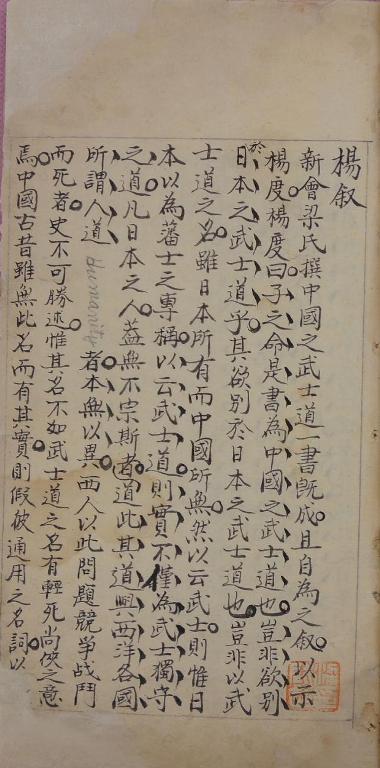 楊叙
新會梁氏撰中國之武士道一書既成。且自為之叙。以示
楊度。楊度曰。子之命是書為中國之武士道也。豈非欲別
於日本之武士道乎。其欲別於日本之武士道也。豈非以武
士道之名。雖日本所有而中國所無。然以云武士。則惟日
本以為藩士之專稱。以云武士道。則實不僅為武士獨守
之道。凡日本之人。蓋無不宗斯者。道此其道與西洋各國
所謂人道Humanity者本無以異。西人以此問題競爭战鬥
而死者。史不可勝述。惟其名不如武士道之名有輕死尚俠之意
焉。中國古昔雖無此名而有其實。則假彼通用之名詞。以